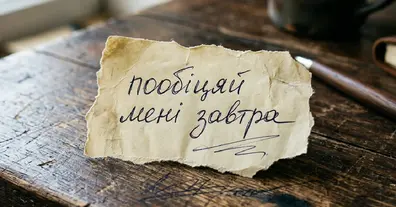 пообіцяй
мені завтра